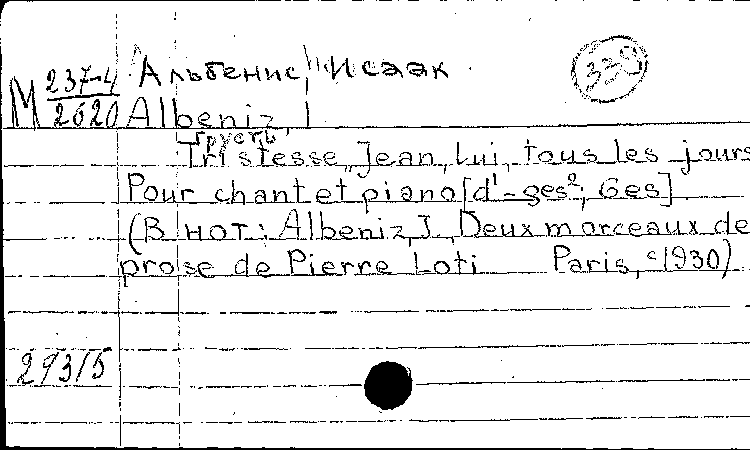 Альбенис, Исаак
339
М 237-4
2620
Albeniz I
Грусть
Tristesse „Jean, lui, tous les jours
Pour chant et piano [d¹-ges²; Ges]
(В нот: Albeniz, I. Deux morceaux de
prose de Pierre Loti Paris, с1930)
29315